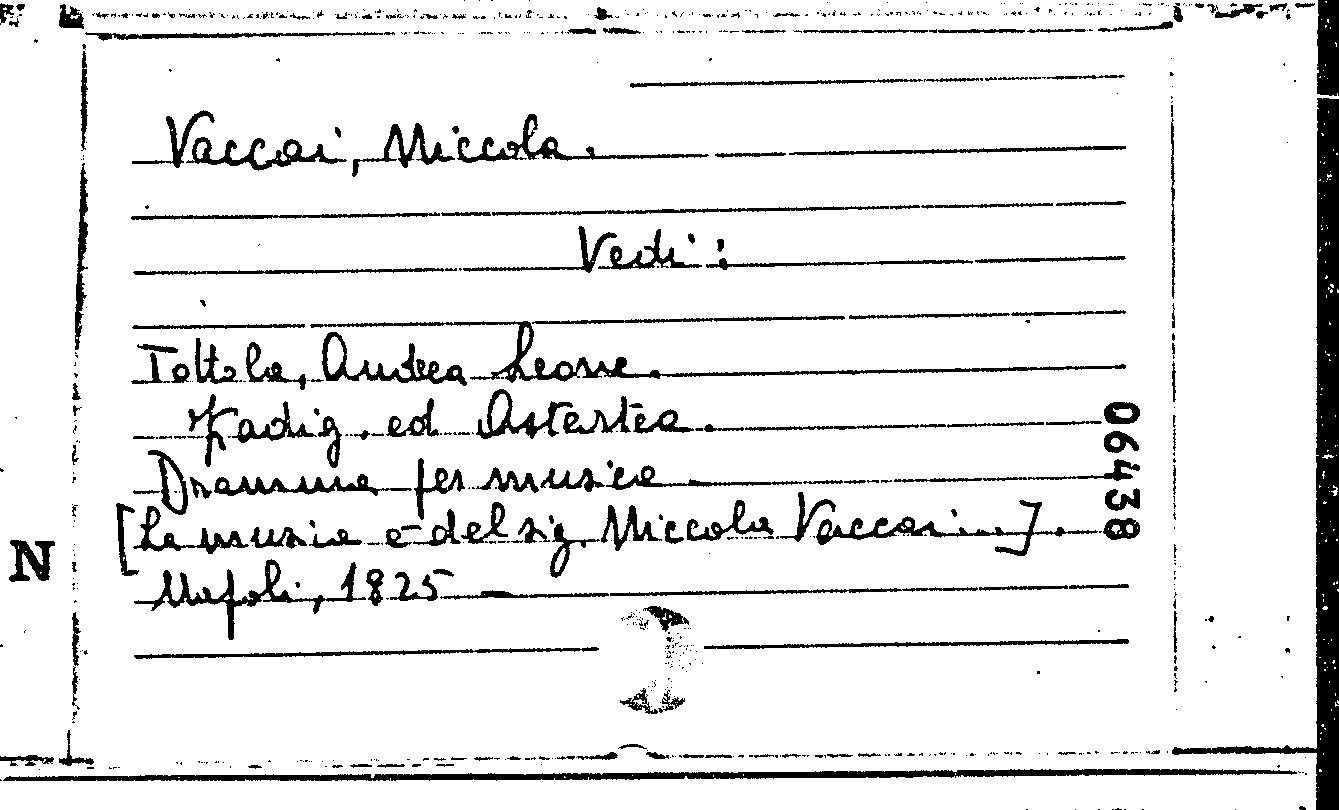 Vaccai, Niccola.
Vedi:
Tottola, Andrea Leone.
Zadig. ed Astartea.
Dramma per musica —
[La musica è del sig. Niccola Vaccai...].
Napoli, 1825 —
06438
N